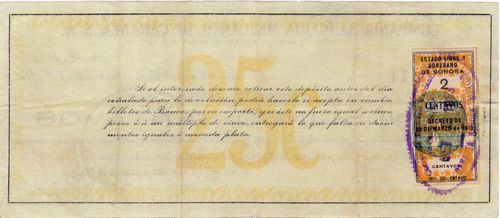 Si el interesado deseare retirar este depósito antes del día
señalado para la devolución, podrá hacerlo si acepta en cambio
billetes de Banco, por su importe, y si éste no fuere igual a cinco
pesos ó á un múltiplo de cinco, entregará lo que falta en docu-
mentos iguales ó moneda plata.
25¢
ESTADO LIBRE Y
SOBERANO
DE SONORA
2
CENTAVOS
DECRETO DE
DE MARZO DE 1913
CENTAVOS
IMP. DEL ESTADO